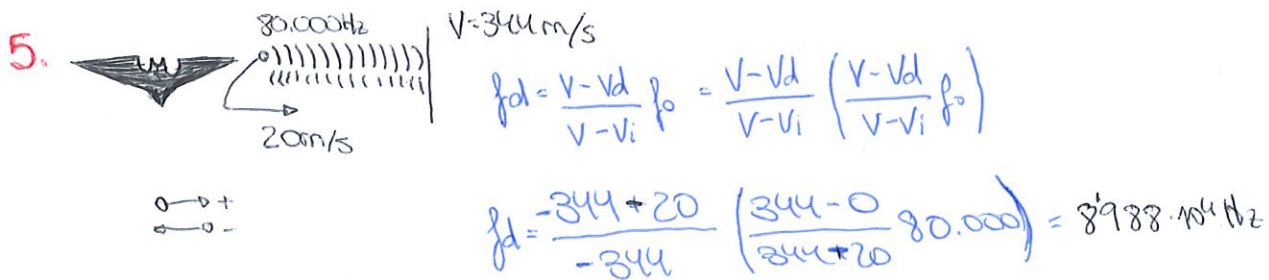 5.
80.000Hz
V=344m/s
20m/s
fd = \frac{V-Vd}{V-Vi} fo = \frac{V-Vd}{V-Vi} (\frac{V-Vd}{V-Vi} fo)
+
-
fd = \frac{-344-20}{-344} (\frac{344-0}{344-20} 80.000) = 8'988·10^4 Hz